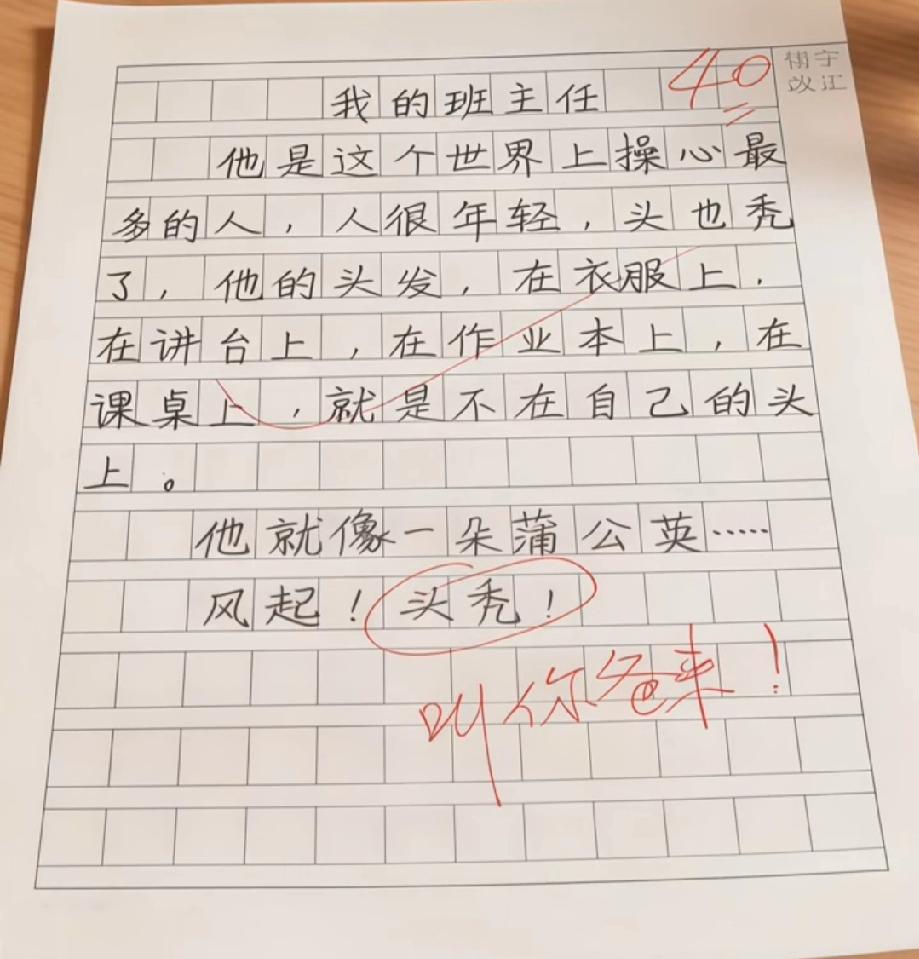 我的班主任 40
他是这个世界上操心最
多的人，人很年轻，头也秃
了，他的头发，在衣服上，
在讲台上，在作业本上，在
课桌上，就是不在自己的头
上。
他就像一朵蒲公英……
风起！头秃！
叫你爸来！